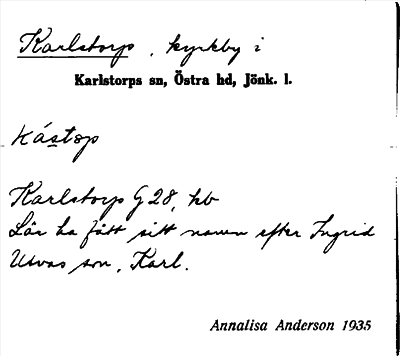 Karlstorp, kyrkby i
Karlstorps sn, Östra hd, Jönk. l.
kástop
Karlstorp G 28, kb
Lär ha fått sitt namn efter Ingrid
Utvas son, Karl.
Annalisa Anderson 1935